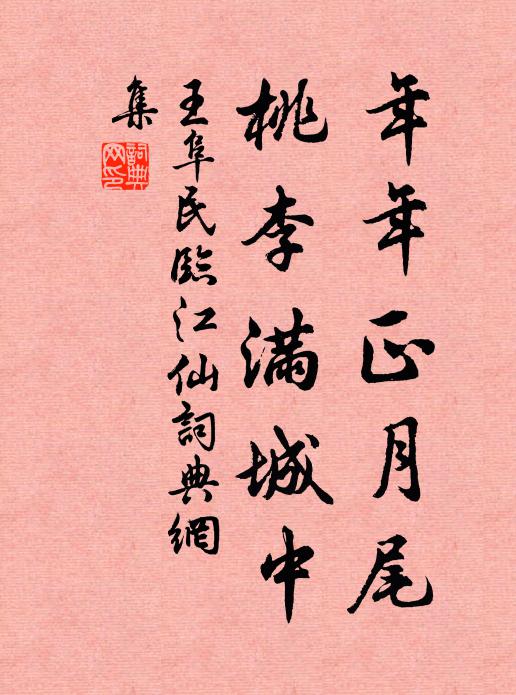 年年正月尾
桃李滿城中
王阜民臨江仙詞典網
集
詞典
网印